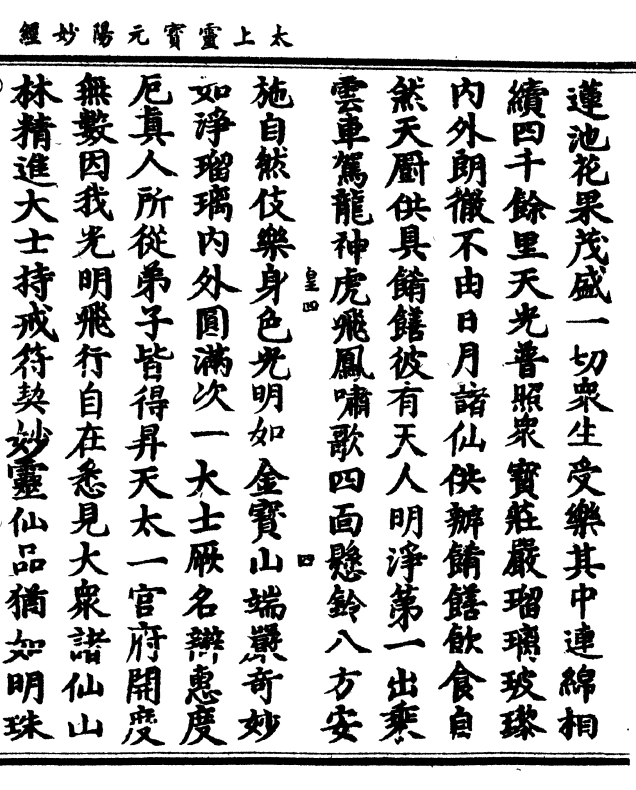 太上靈寳元陽妙經
蓮池花果茂盛一切衆生受樂其中連綿相
續四千餘里天光普照衆寳莊嚴瑠璃玻瓈
內外朗徹不由日月諸仙供辦餚饍飲食自
然天厨供具餚饍彼有天人明淨第一出乘
雲車駕龍神虎飛鳳嘯歌四面懸鈴八方安
皇四
四
施自然伎樂身色光明如金寳山端嚴奇妙
如淨瑠璃内外圓滿次一大士厥名辯惠度
厄真人所從弟子皆得昇天太一官府開度
無數因我光明飛行自在悉見大衆諸仙山
林精進大士持戒符契妙靈仙品猶如明珠